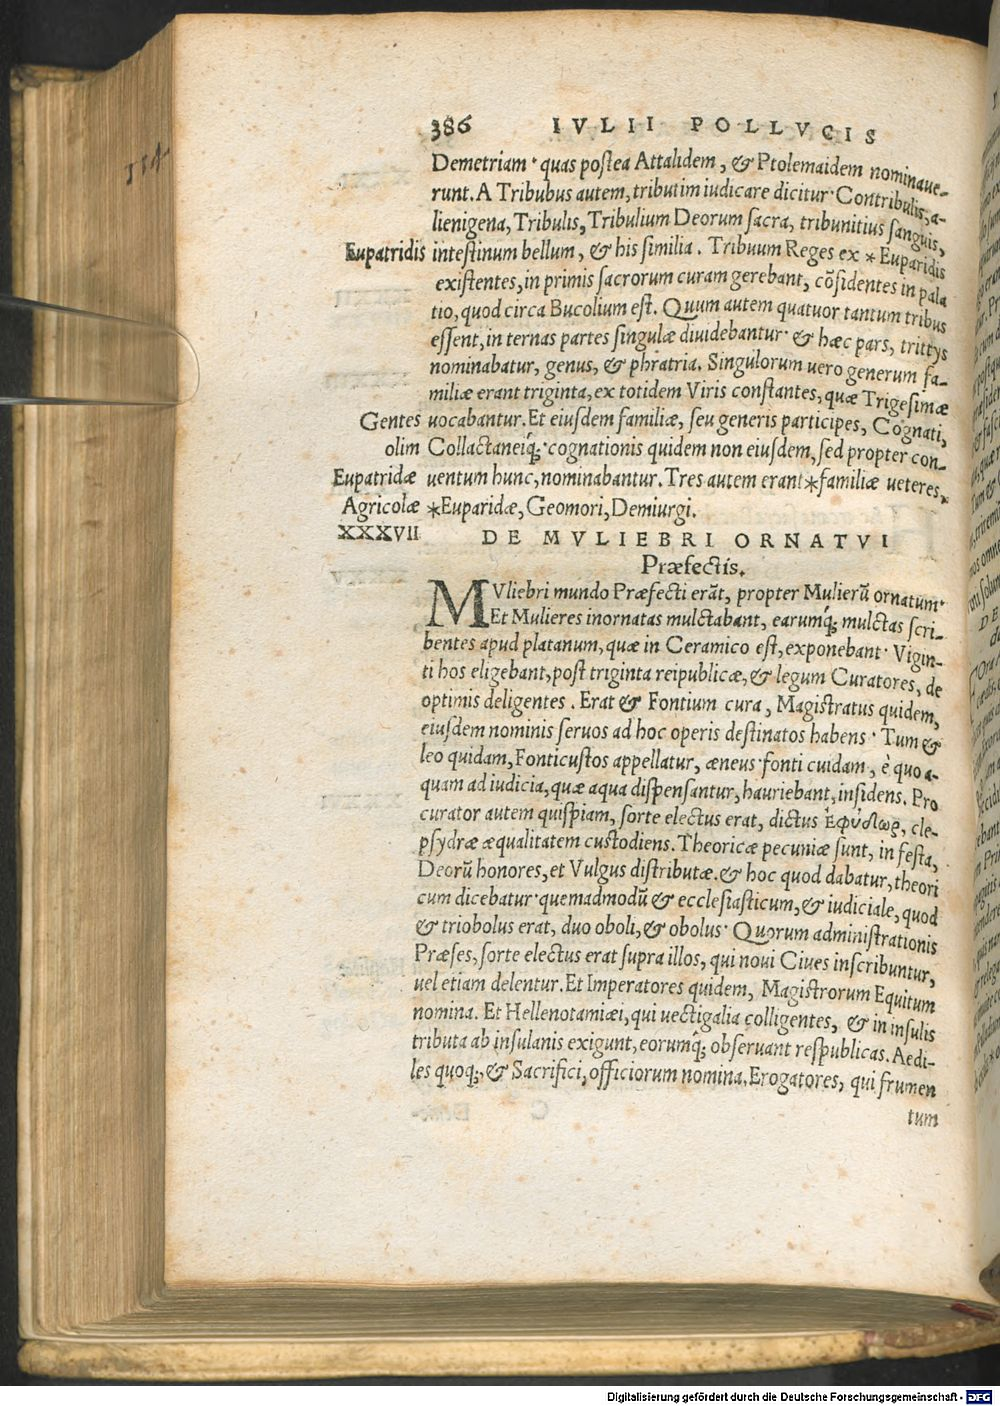 114
386 IVLII POLLVCIS
Demetriam· quas postea Attalidem, & Ptolemaidem nominaue-
runt. A Tribubus autem, tributim iudicare dicitur· Contribulis, a-
lienigena, Tribulis, Tribulium Deorum sacra, tribunitius sanguis,
Eupatridis intestinum bellum, & his similia. Tribuum Reges ex * Euparidis
existentes, in primis sacrorum curam gerebant, cõsidentes in pala
tio, quod circa Bucolium est. Quum autem quatuor tantum tribus
essent, in ternas partes singulæ diuidebantur· & hæc pars, trittys
nominabatur, genus, & phratria. Singulorum uero generum fa-
miliæ erant triginta, ex totidem Viris constantes, quæ Trigesimæ
Gentes uocabantur. Et eiusdem familiæ, seu generis participes, Cognati,
olim Collactaneiq́;· cognationis quidem non eiusdem, sed propter con-
Eupatridæ uentum hunc, nominabantur. Tres autem erant * familiæ ueteres,
Agricolæ * Euparidæ, Geomori, Demiurgi.
XXXVII DE MVLIEBRI ORNATVI
Præfectis.
MVliebri mundo Præfecti erãt, propter Mulierũ ornatum·
Et Mulieres inornatas mulctabant, earumq́; mulctas scri-
bentes apud platanum, quæ in Ceramico est, exponebant· Vigin-
ti hos eligebant, post triginta reipublicæ, & legum Curatores, de
optimis deligentes. Erat & Fontium cura, Magistratus quidem,
eiusdem nominis seruos ad hoc operis destinatos habens· Tum &
leo quidam, Fonticustos appellatur, æneus· fonti cuidam, è quo a-
quam ad iudicia, quæ aqua dispensantur, hauriebant, insidens. Pro
curator autem quispiam, sorte electus erat, dictus Ἐφύδωρ, cle-
psydræ æqualitatem custodiens. Theoricæ pecuniæ sunt, in festa,
Deorũ honores, et Vulgus distributæ. & hoc quod dabatur, theori
cum dicebatur· quemadmodũ & ecclesiasticum, & iudiciale, quod
& triobolus erat, duo oboli, & obolus· Quorum administrationis
Præses, sorte electus erat supra illos, qui noui Ciues inscribuntur,
uel etiam delentur. Et Imperatores quidem, Magistrorum Equitum
nomina. Et Hellenotamiæi, qui uectigalia colligentes, & in insulis
tributa ab insulanis exigunt, eorumq́; obseruant respublicas. Aedi-
les quoq;, & Sacrifici, officiorum nomina. Erogatores, qui frumen
tum
Digitalisierung gefördert durch die Deutsche Forschungsgemeinschaft - DFG